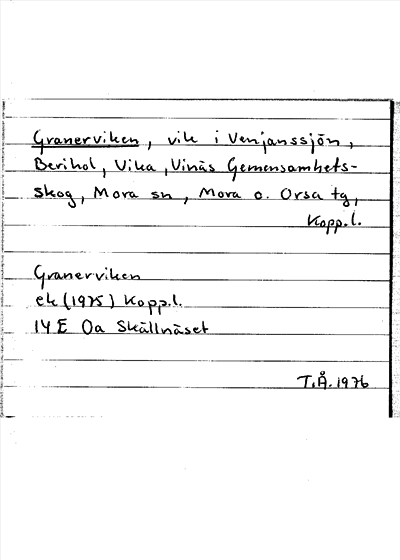 Granerviken, vik i Venjanssjön,
Berihol, Vika, Vinäs Gemensamhets-
skog, Mora sn, Mora o. Orsa tg,
Kopp.l.
Granerviken
ek (1975) Kopp.l.
14 E 0a Skällnäset
T.Å. 1976